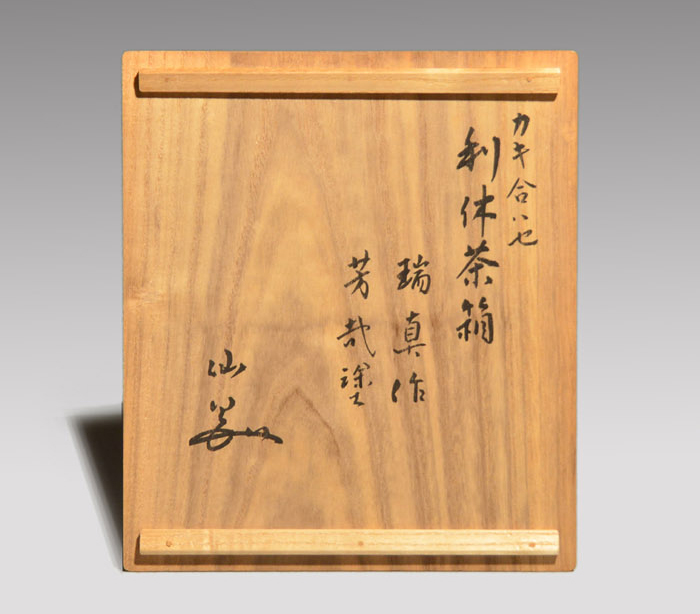 カキ合ハセ
利休茶箱
瑞真作
芳哉塗
仙